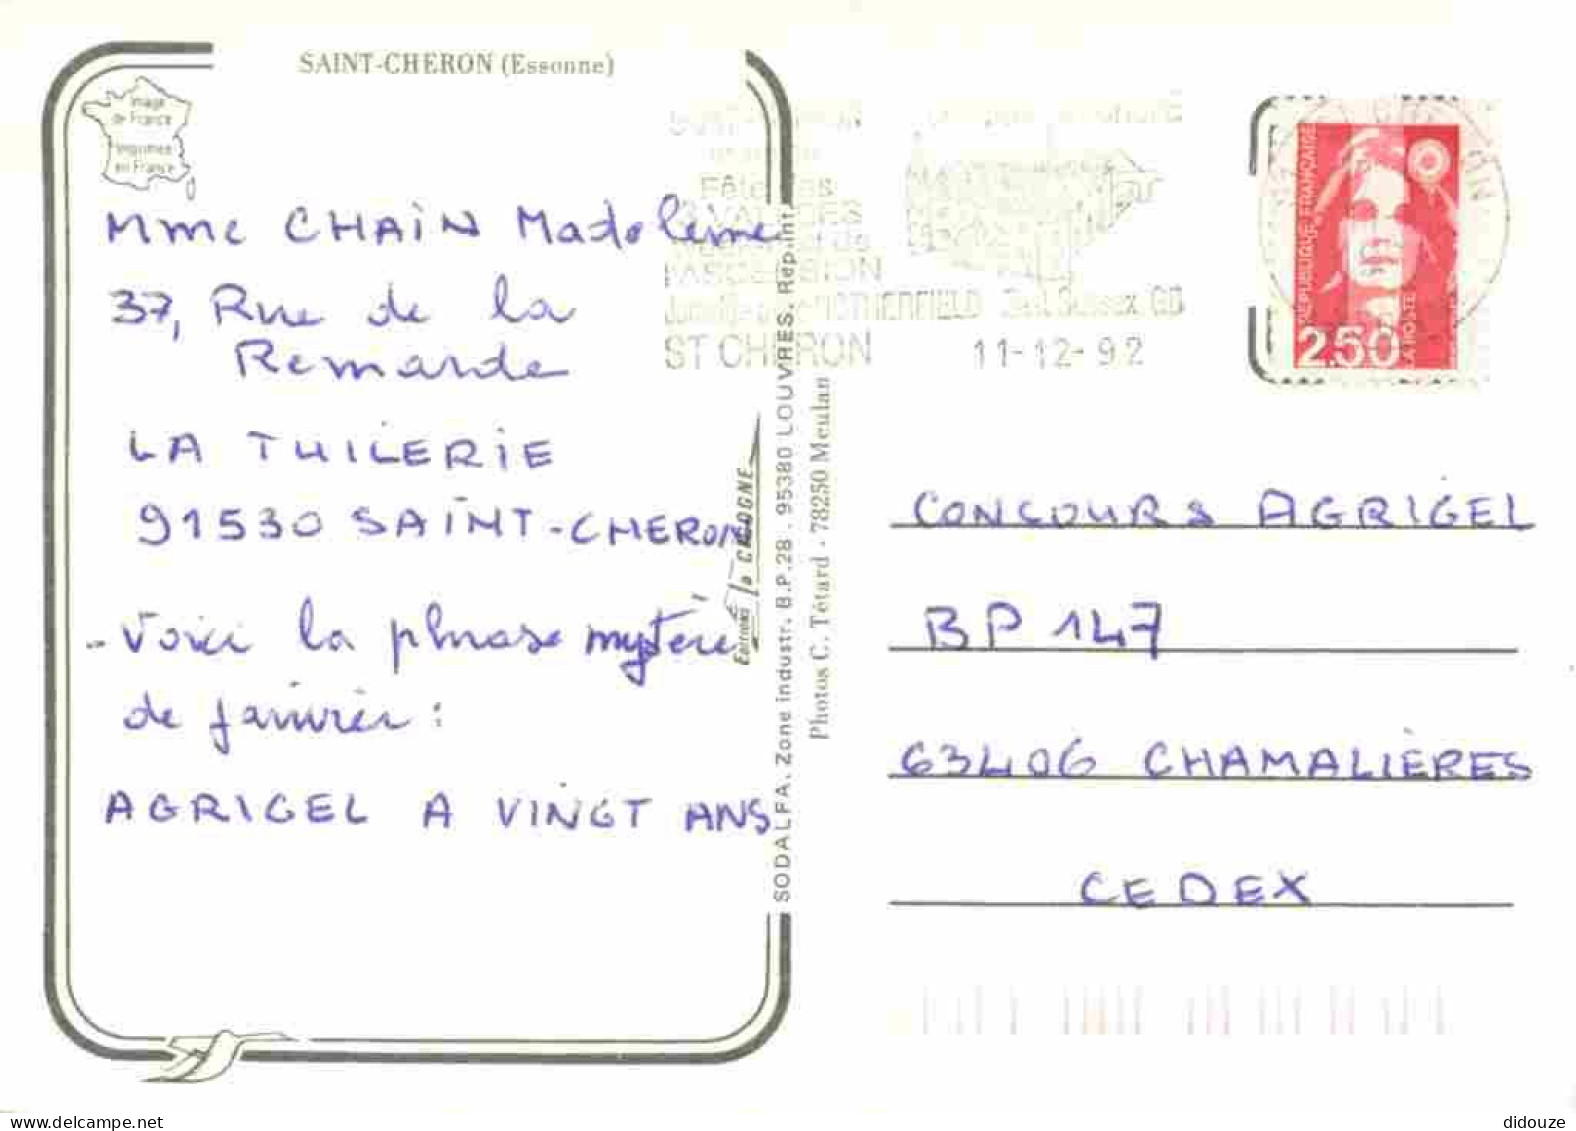 SAINT-CHERON (Essonne)
Image
de France
Imprimée
en France
Mme CHAIN Madeleine
37, Rue de la
Remarde
LA TUILERIE
91530 SAINT-CHERON
- Voici la phrase mystère
de janvier :
AGRIGEL A VINGT ANS
Editions la CIGOGNE
SODALFA. Zone industr. B.P.28 . 95380 LOUVRES. Rep.int.
Photos C. Tétard - 78250 Meulan
Fête des
3 VALLEES
de
l'ASCENSION
ROTHERFIELD East Sussex GB
ST CHERON 11-12-92
REPUBLIQUE FRANÇAISE
2,50
LA POSTE
CONCOURS AGRIGEL
BP 147
63406 CHAMALIÈRES
CEDEX
didouze